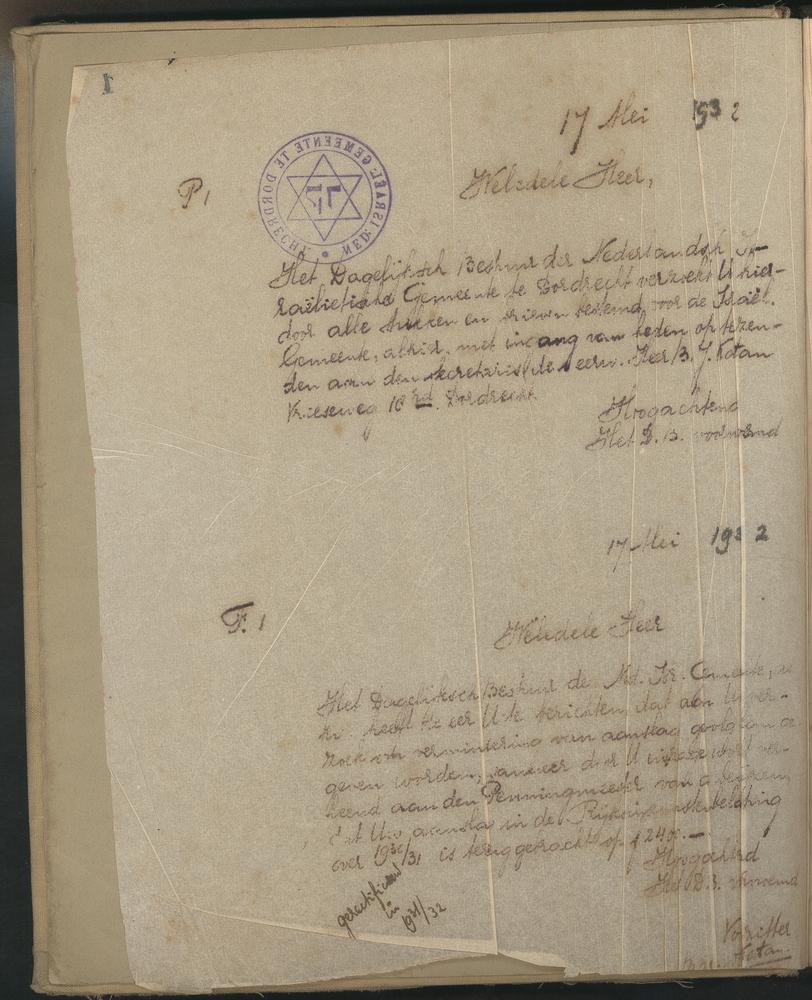 1
17 Mei 1932
P 1
NED: ISRAËL: GEMEENTE TE DORDRECHT
Weledele Heer,
Het Dagelijksch Bestuur der Nederlandsch Is-
raëlietische Gemeente te Dordrecht verzoekt U hier-
door alle stukken en brieven bestemd voor de Israël.
Gemeente, alhier, met ingang van heden op te zen-
den aan den secretaris de Weleerw. Heer B. J. Kotan
Vrieseweg 10 rd. Dordrecht
Hoogachtend
Het D. B. voornoemd
17 Mei 1932
F. 1
Weledele Heer
Het Dagelijksch Bestuur der Ned. Isr. Gemeente,
heeft de eer U te berichten, dat aan Uw ver-
zoek om vermindering van aanslag gevolg kan ge
geven worden, wanneer door U inzage wordt ver-
leend aan den Penningmeester van
dat Uw aanslag in de Rijksinkomstenbelasting
over 1930/31 is teruggebracht op f 2400.-
Hoogachtend
Het D. B. voornoemd
gerectificeerd
in
1931/32
Voorzitter
Kotan